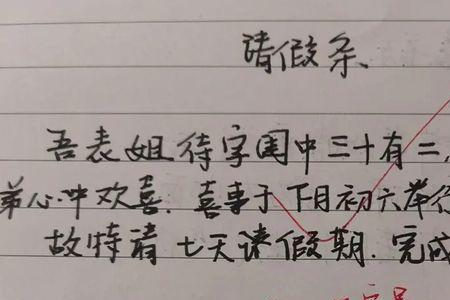 请假条
吾表姐待字闺中三十有二,
弟心中欢喜.喜事于下月初六举行
故特请七天请假期.完成